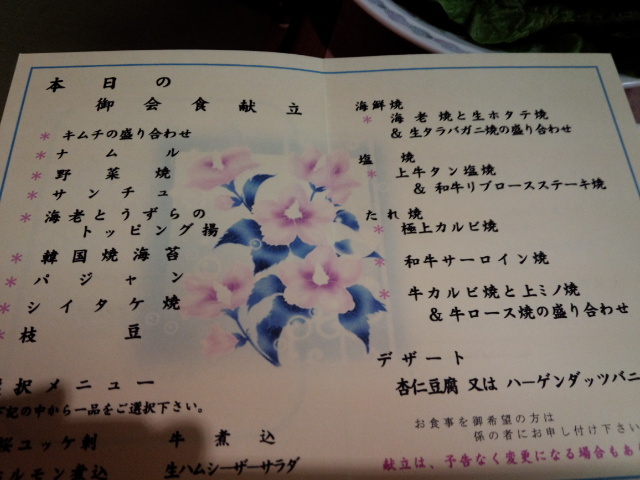 本日の
御会食献立
* キムチの盛り合わせ
* ナムル
* 野菜焼
* サンチュ
* 海老とうずらの
トッピング揚
* 韓国焼海苔
* パジャン
* シイタケ焼
* 枝豆
択メニュー
下記の中から一品をご選択下さい。
桜ユッケ刺 牛煮込
ホルモン煮込 生ハムシーザーサラダ
海鮮焼
* 海老焼と生ホタテ焼
& 生タラバガニ焼の盛り合わせ
塩焼
* 上牛タン塩焼
& 和牛リブロースステーキ焼
たれ焼
* 極上カルビ焼
* 和牛サーロイン焼
* 牛カルビ焼と上ミノ焼
& 牛ロース焼の盛り合わせ
デザート
杏仁豆腐 又は ハーゲンダッツバニ
お食事を御希望の方は
係の者にお申し付け下さい
献立は、予告なく変更になる場合もあ